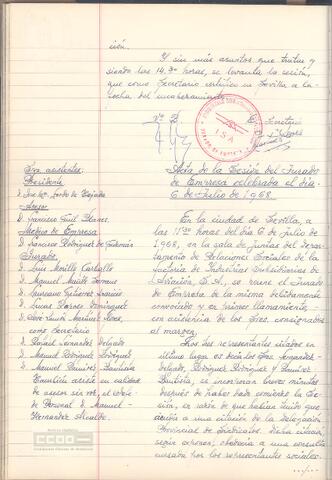 ción.
Y sin más asuntos que tratar y
siendo las 14,30 horas, se levanta la sesión,
que como Secretario certifico en Sevilla a la
fecha del encabezamiento.
Vº Bº
El Secretario
I.S.A.
Sres. asistentes:
Presidente
D. José Mª. de Tejada
Asesor
D. Francisco Gil
Médico de Empresa
D. Francisco Rodríguez de
Jurados
D. Luis Morillo Carballo
D. Manuel Serrano
D. Laureano Gutiérrez
D. Lucas Dominguez
D. José Luis Martínez
como Secretario
D. Rafael Fernández Delgado
D. Manuel Rodríguez Rodríguez
D. Manuel Ramírez Bautista
También asiste en calidad
de asesor sin voz, el Jefe
de Personal D. Manuel
Fernández
Acta de la Sesión del Jurado
de Empresa celebrada el día
6 de Julio de 1968.
En la ciudad de Sevilla, a
las 11'30 horas del día 6 de julio de
1968, en la sala de juntas del Depar-
tamento de Relaciones Sociales de la
Factoría de Industrias Subsidiarias de
Aviación, S.A., se reune el Jurado
de Empresa de la misma debidamente
convocado y en primer llamamiento,
con asistencia de los Sres. consignados
al margen.
Los tres representantes citados en
último lugar es decir los Sres. Fernández
Delgado, Rodríguez Rodríguez y Ramírez
Bautista, se incorporan breves minutos
después de haber dado comienzo la Se-
sión, en razón de que habían tenido que
acudir a una citación de la Delegación
Provincial de Sindicatos. Dicha citación,
según exponen, obedecía a una consulta
cursada por los representantes sociales
CCOO